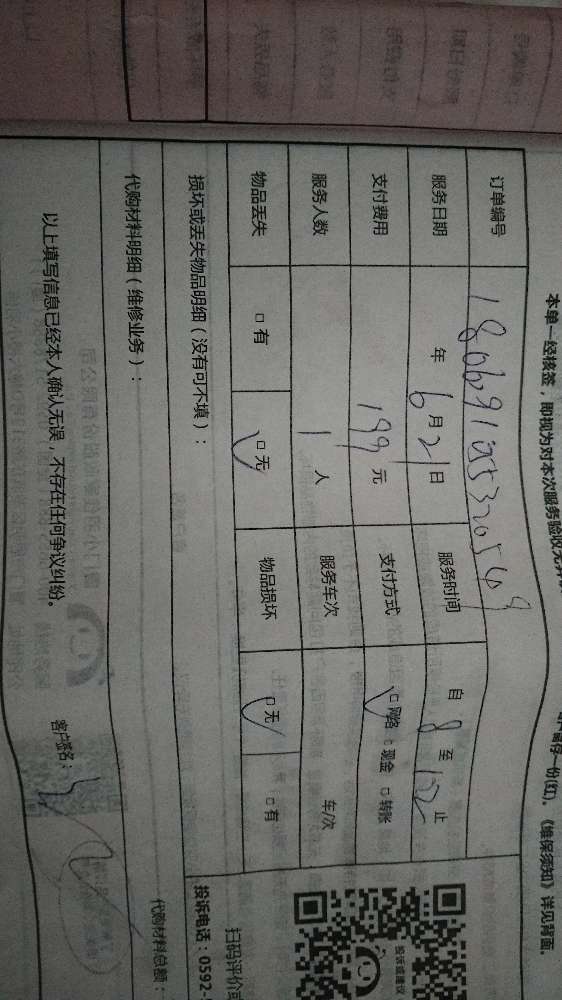 本单一经核签，即视为对本次服务验收无
份(红)。《维保须知》详见背面。
订单编号
服务日期 年 6月21日 服务时间 自 8 至 止
支付费用 199元 支付方式 □网络 □现金 □转账
服务人数 1人 服务车次 车/次
物品丢失 □有 □无 物品损坏 □无 □有
损坏或丢失物品明细（没有可不填）：
代购材料明细（维修业务）：
代购材料总额：
以上填写信息已经本人确认无误，不存在任何争议纠纷。
客户签名：
投诉或建议
扫码评价或
投诉电话：0592-